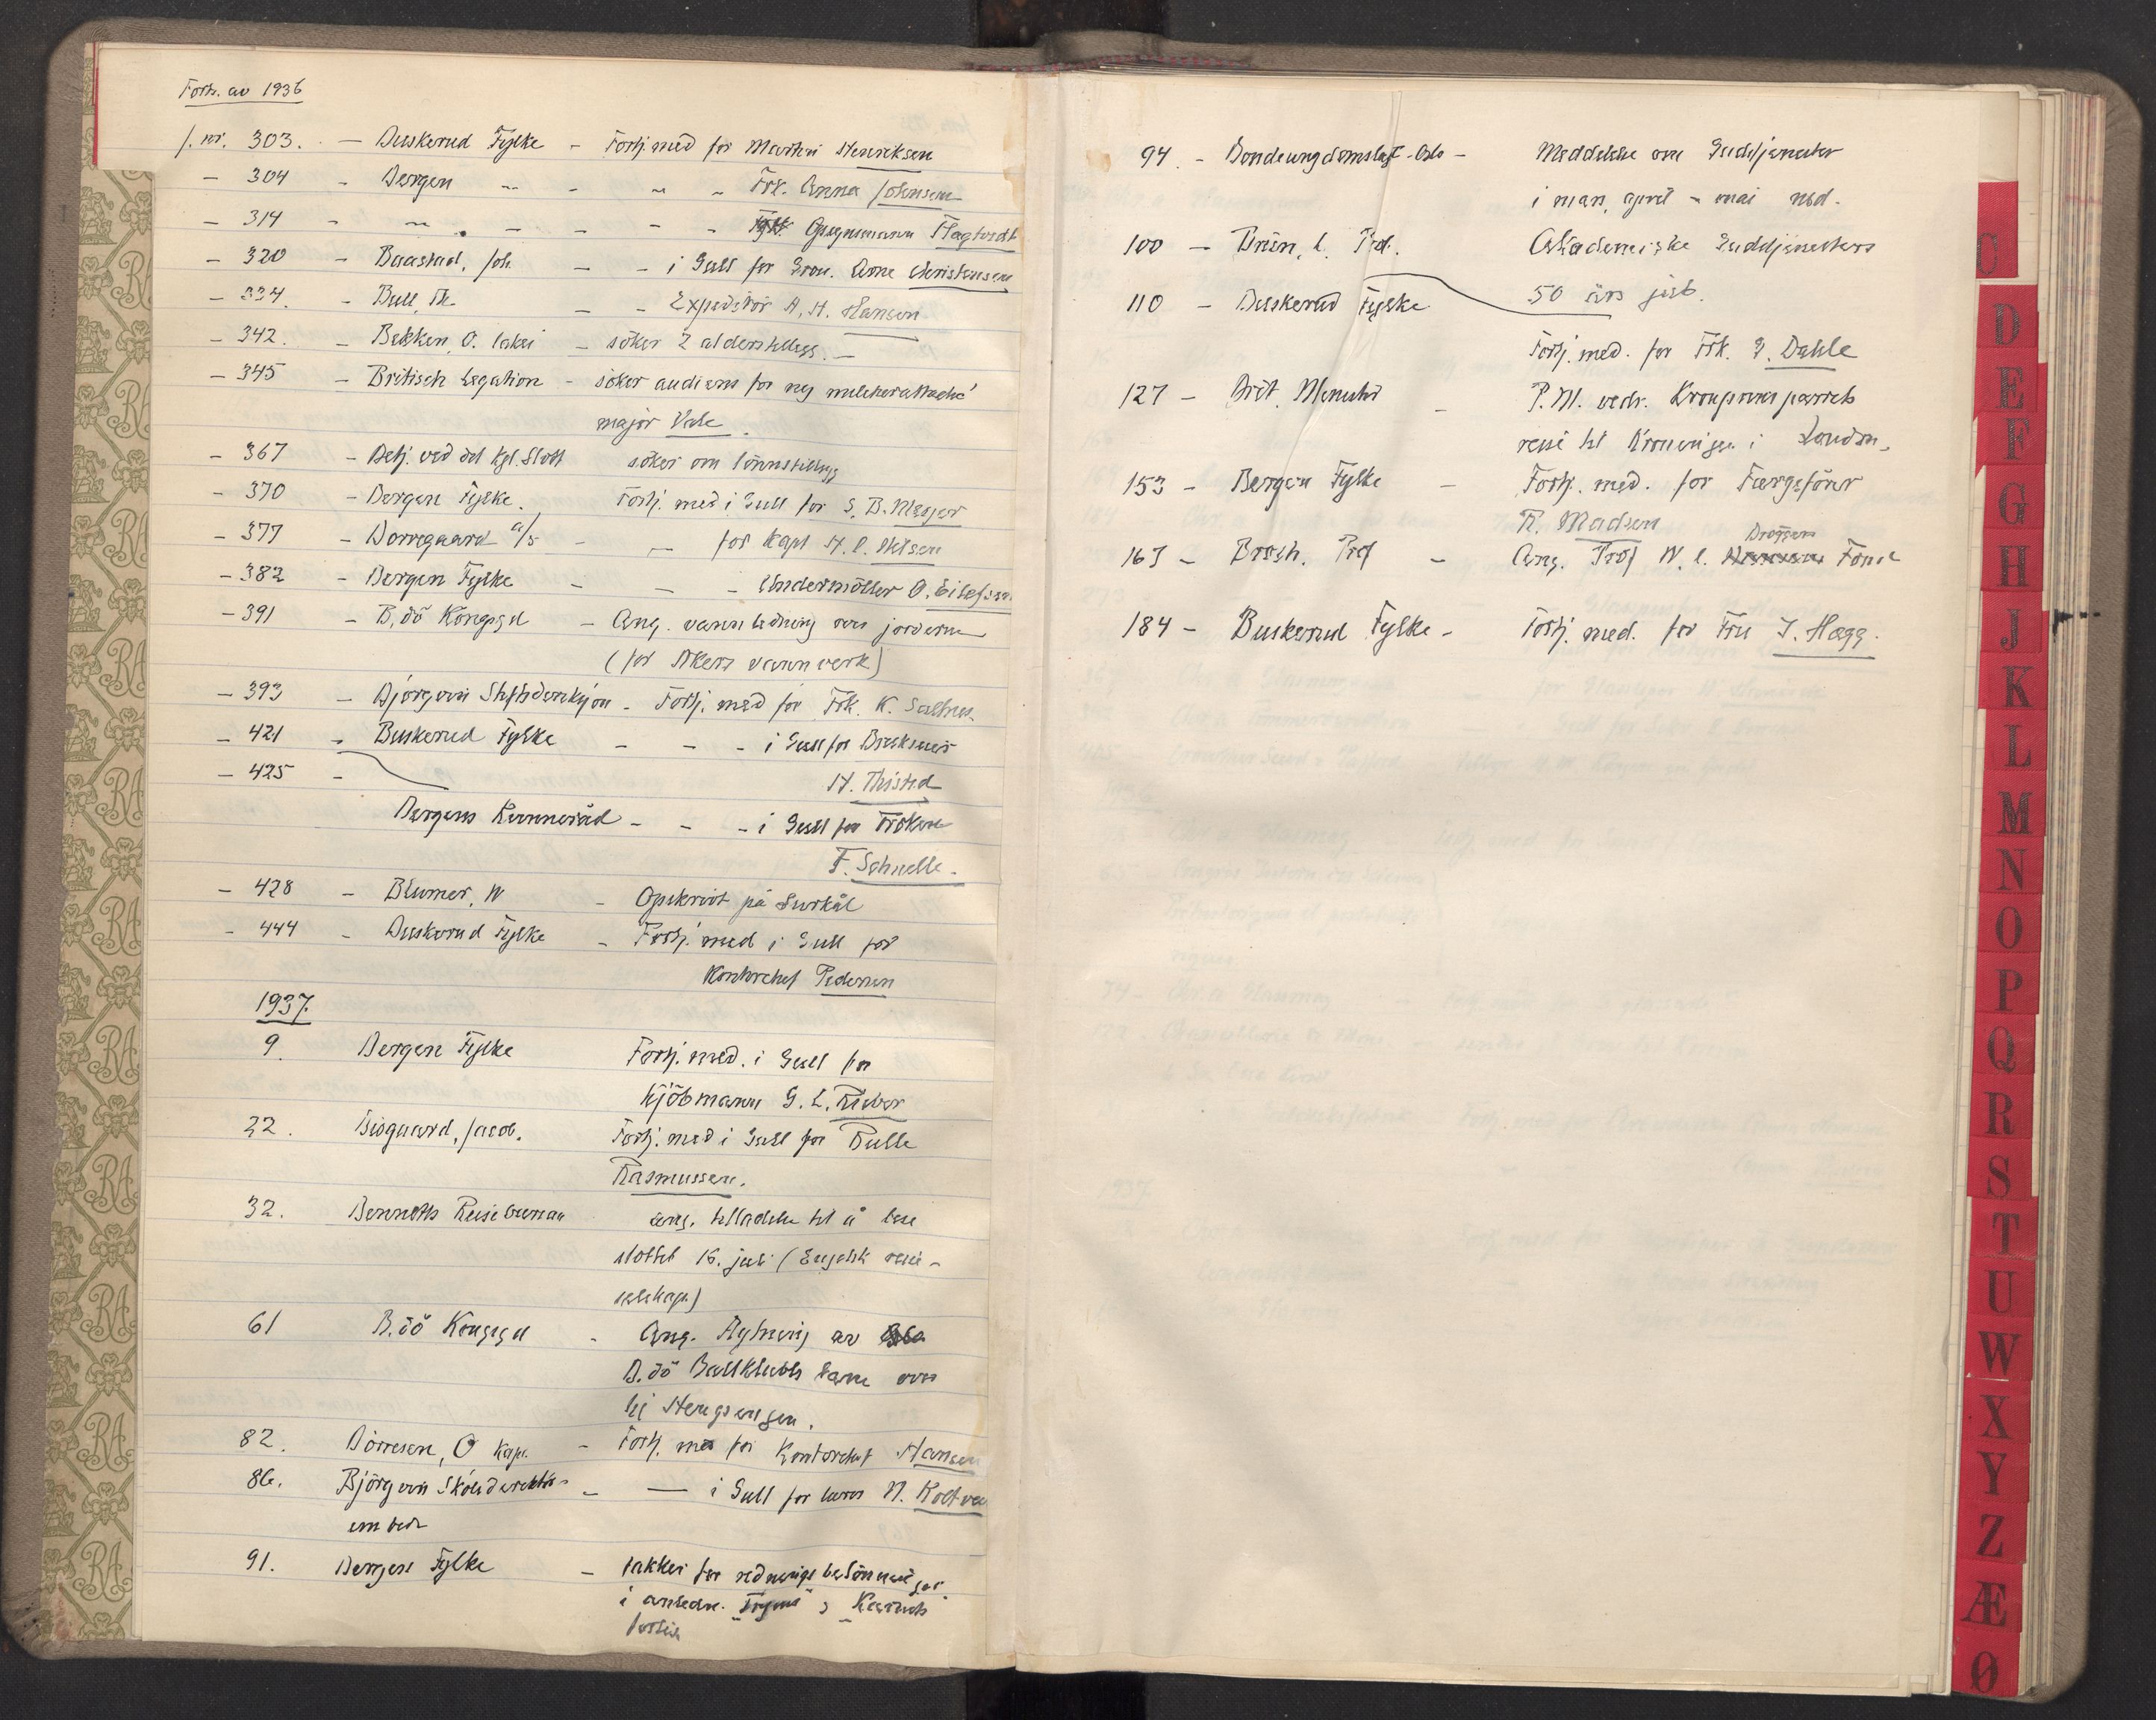 Forts. av 1936
J. nr. 303. — Buskerud Fylke - Fortj. med for Martin Henriksen
- 304 - Bergen - - Frk. Anna Johnsen
- 314 - - - - -
- 320 - Baastad, Joh. - - i Gull for Arne Christensen
- 334. - Bull, - - Expeditør A. H. Hansen
- 342. - Bakken, O. lakei - söker 2 alderstillegg. -
- 345 - Britisch Legation - söker audiens for ny militærattaché
major Vale.
- 367 - Betj. ved det Kgl. Slott söker om lönnstillegg
- 370 - Bergen Fylke. Fortj. med i Gull for S. B. Meyer
- 377 - Borregaard A/S - - for Kapt
- 382 - Bergen Fylke - - - Undermöller O.
- 391 - B.dö Kongsgd - Ang. vannledning over jordene
(for Akers vannverk)
- 393 - Björgvin Stiftsdireksjon - Fortj. med for Frk. K.
- 421 - Buskerud Fylke - - - i Gull for
H. Thisted
- 425 -
Bergens Kemnerád - - - i Gull for Fröken
F. Schnelle.
- 428 - Blumer, W - Opskrivt på Surkål
- 444 - Buskerud Fylke - Fortj. med i Gull for
Kontorchef Pedersen
1937.
9. Bergen Fylke Fortj. med. i Gull for
Kjöbmann G. L. Rieber
22. Bisgaard, Jacob. Fortj. med i Gull for Rulle
Rasmussen.
32. Bennetts Reisebureau ang. tilladelse til å bese
slottet 16. juli (Engelsk reise-
selskap.)
61 B.dö Kongsgd - Ang. flytning av
B.dö Ballklubbs bane over
til Hengsengen.
82. Dörresen, O Kapt. - Fortj. med for Kontorchef Hansen
86. Björgvin Skoledirektör- - — i Gull for lærer N. Koltveit
embede
91. Bergen Fylke - takker for redningsbelönninger
i anledn.
forlis
94. - Bondeungdomslaget - Oslo - Meddelelse om Gudstjenester
i mars, april - mai nd.
100 - Bruun, C. Akademiske Gudstjenesters
50 års jub.
110 - Buskerud Fylke
Fortj. med. for Frk. G. Dahle
127 - Brit. Minister - P. M. vedr. Kronprinsparrets
reise til Kroningen i London.
153 - Bergen Fylke - Fortj. med. for Færgeförer
R. Madsen
Bröggers
163 - Broch. Prof - Ang. Prof W. C. Fond
184 - Buskerud Fylke - Fortj. med. for Fru J. Hagg.
C
D
E
F
G
H
J
K
L
M
N
O
P
Q
R
S
T
U
W
X
Y
Z
Æ
Ø